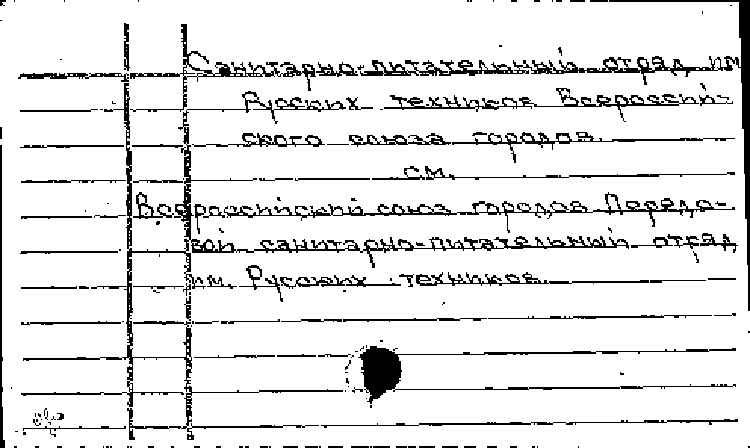 Санитарно-питательный отряд им
Русских техников Всероссий-
ского союза городов.
см.
Всероссийский союз городов Передо-
вой санитарно-питательный отряд
им. Русских техников.